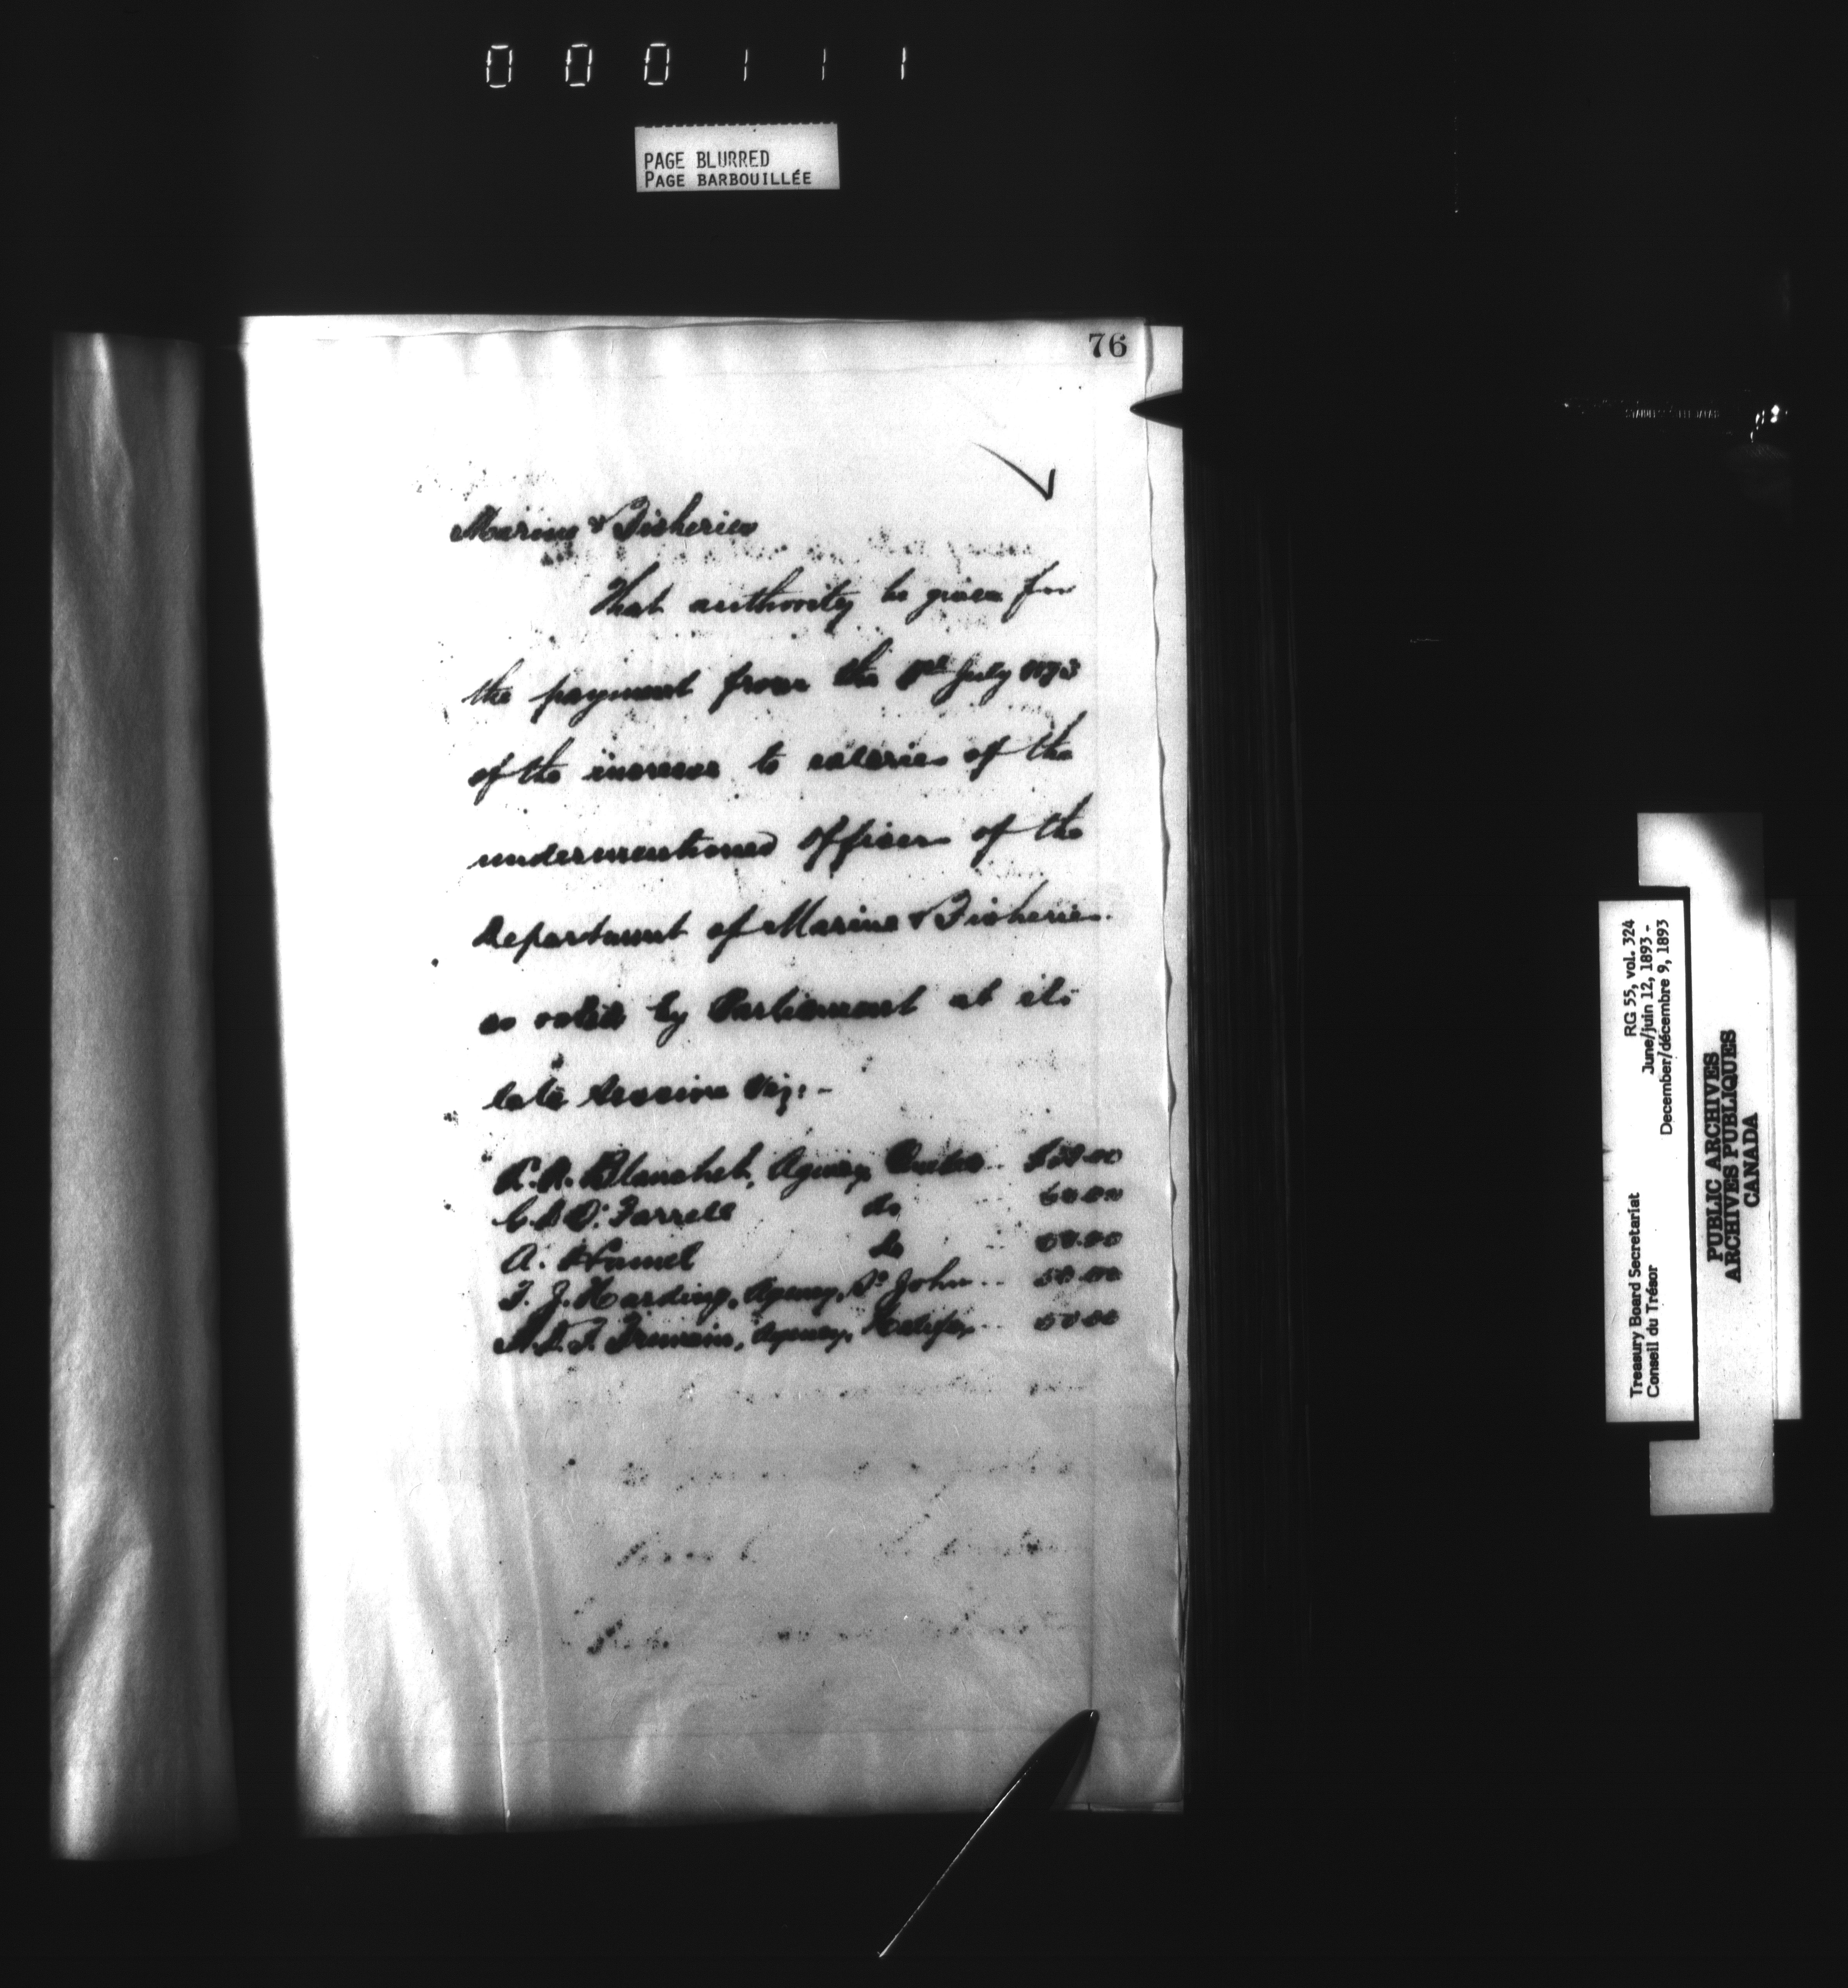 000111
PAGE BLURRED
PAGE BARBOUILLÉE
76
Marine & Fisheries
That authority be given for
the payment from the 1st July 1893
of the increase to salaries of the
undermentioned Officers of the
Department of Marine & Fisheries
as voted by Parliament at its
late Session Viz:-
Blanchet, Agency, Quebec
O'Farrell do
A. Hamel do
J. Harding, Agency, St John 50.00
Agency, Halifax
RG 55, vol. 324
June/juin 12, 1893 -
December/décembre 9, 1893
Treasury Board Secretariat
Conseil du Trésor
PUBLIC ARCHIVES
ARCHIVES PUBLIQUES
CANADA